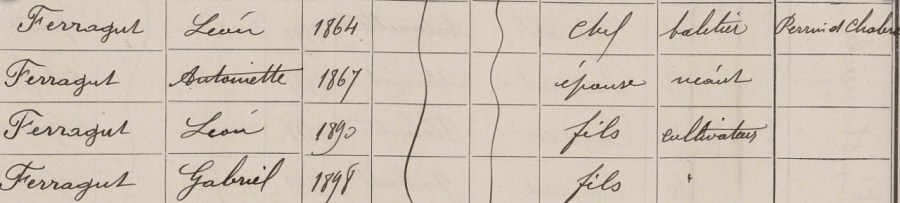 Ferragut Léon 1864 chef Perrin et Chabert
Ferragut Antoinette 1867 épouse néant
Ferragut Léon 1890 fils cultivateur
Ferragut Gabriel 1898 fils